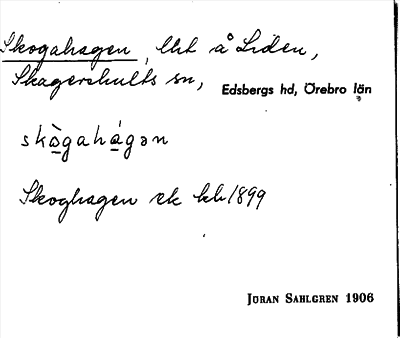 Skogahagen, lht å Liden,
Skagershults sn, Edsbergs hd, Örebro län
skògahágən
Skoghagen ek kb 1899
JÖRAN SAHLGREN 1906